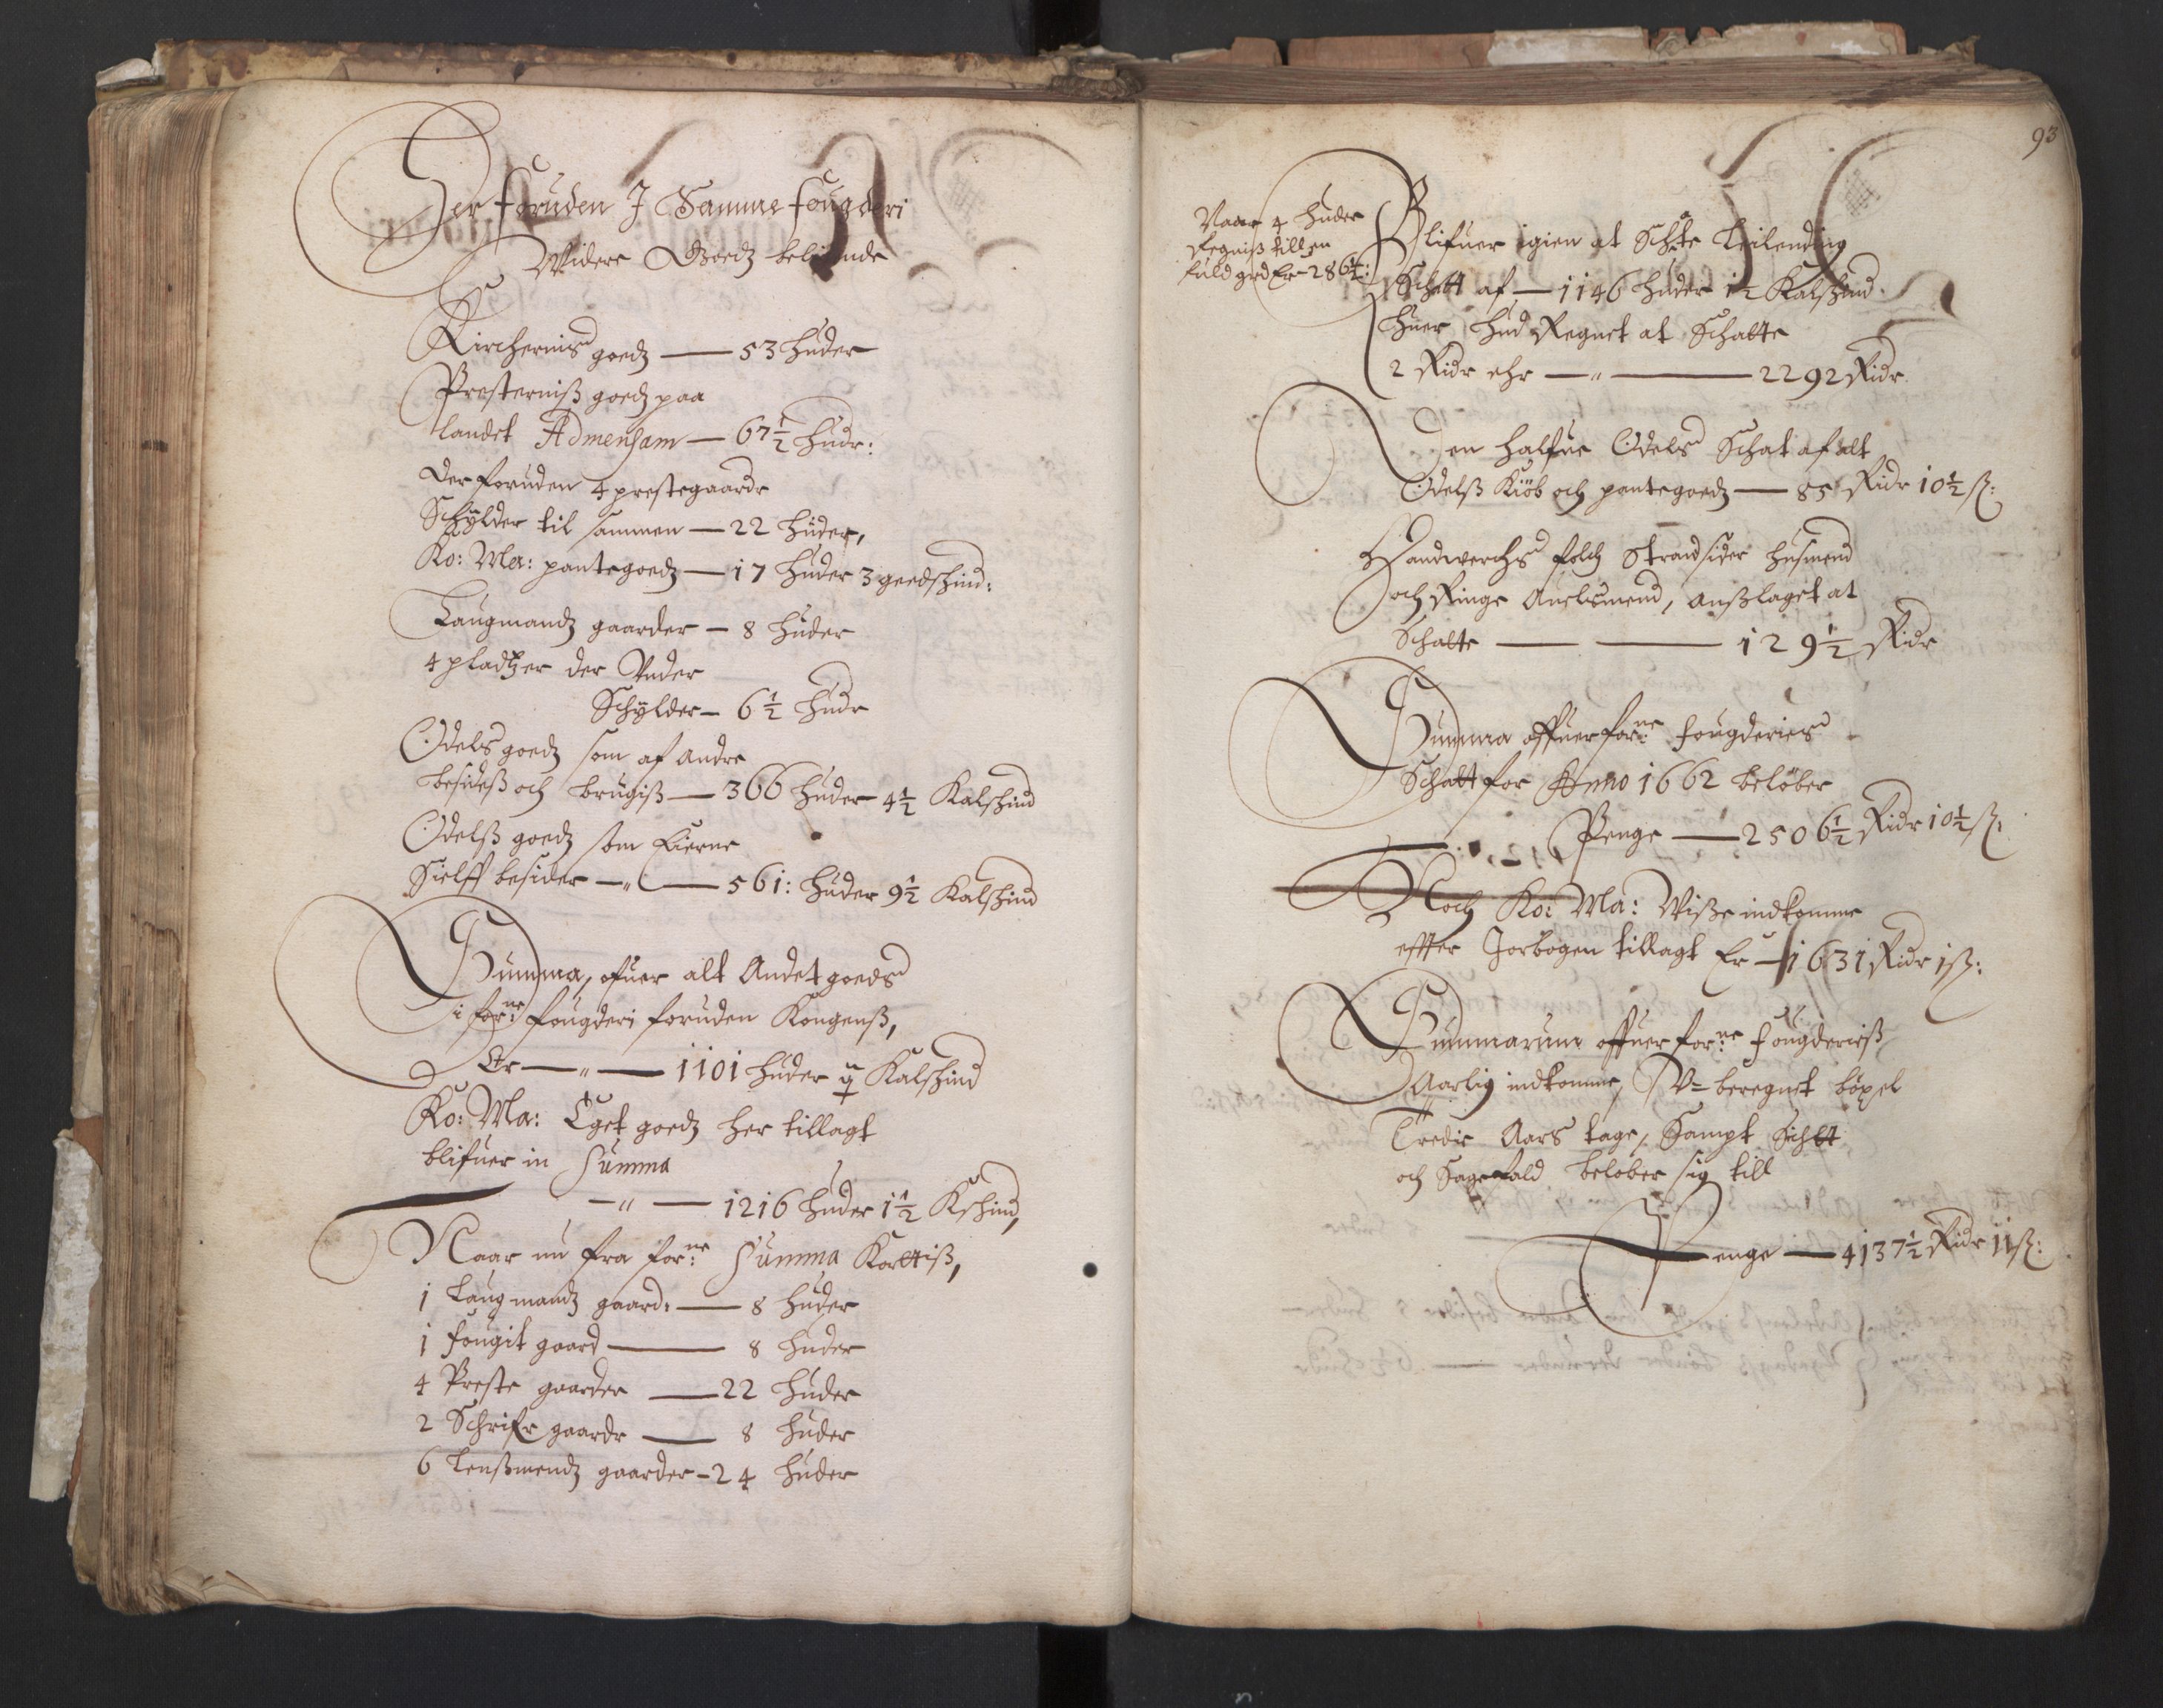 Der foruden J Samme fougderi
Widere Goedz belигende
Kirchernis goedz — 53 huder
Presterniß goedz paa
landet Ad mensam — 67½ hudr:
der foruden 4 prestegaarde
Schÿlder til sammen — 22 huder,
Ko: Ma: pantegoedz — 17 huder 3 geedschind:
Laugmandz gaarder — 8 huder
4 pladtzer der Under
Schÿlder — 6½ hudr
Odels goedz som af andre
besideß och brugiß — 366 huder 4½ Kalfschind
Odelß goedz som Eierne
Sielff besider —„— 561: huder 9½ Kalfschind
Summa, ofuer alt Andet goeds
i forne: fougderi foruden Kongenß,
Er —„— 1101 huder Kalfschind
Ko: Ma: Eget goedz her tillagt
blifuer in Summa
—„— 1216 huder 1½ Kschind,
Naar nu fra forne: Summa Kortiß,
1 Laugmandz gaard: — 8 huder
1 fougit gaard — 8 huder
4 Preste gaarder — 22 huder
2 Schrifr gaarde — 8 huder
6 Lenßmendz gaarder – 24 huder
93
Naar 4 huder
Regniß till en
fuld grd Er – 286½:
Blifuer igien at Schte Leilending
Schatt af — 1146 huder 1½ Kalfschind
huer hud Regnet at Schatte
2 Ridr ehr —„— 2292 Ridr
Den halfue Odels Schat af alt
Odelß Kiöb och pantegoedz — 85 Ridr 10½ ß:
Handwerchs folch Strandsider husmend
och Ringe Auelsmend, anßlaget at
Schatte — — 129½ Ridr
Summa offuer forne: fougderies
Schatt for Anno 1662 beløber
Penge — 2506½ Ridr 10½ ß:
Noch Ko: Ma: Wiße indkomme
effter Jorbogen tillagt Er — 1631 Ridr 1 ß:
Summarum offuer forne: fougderieß
Aarlig indkomme, V= beregnet böxel
Tredie Aars tage, Sampt Sichtt
och Sagefald belober sig till
Penge — 4137½ Ridr 11 ß: